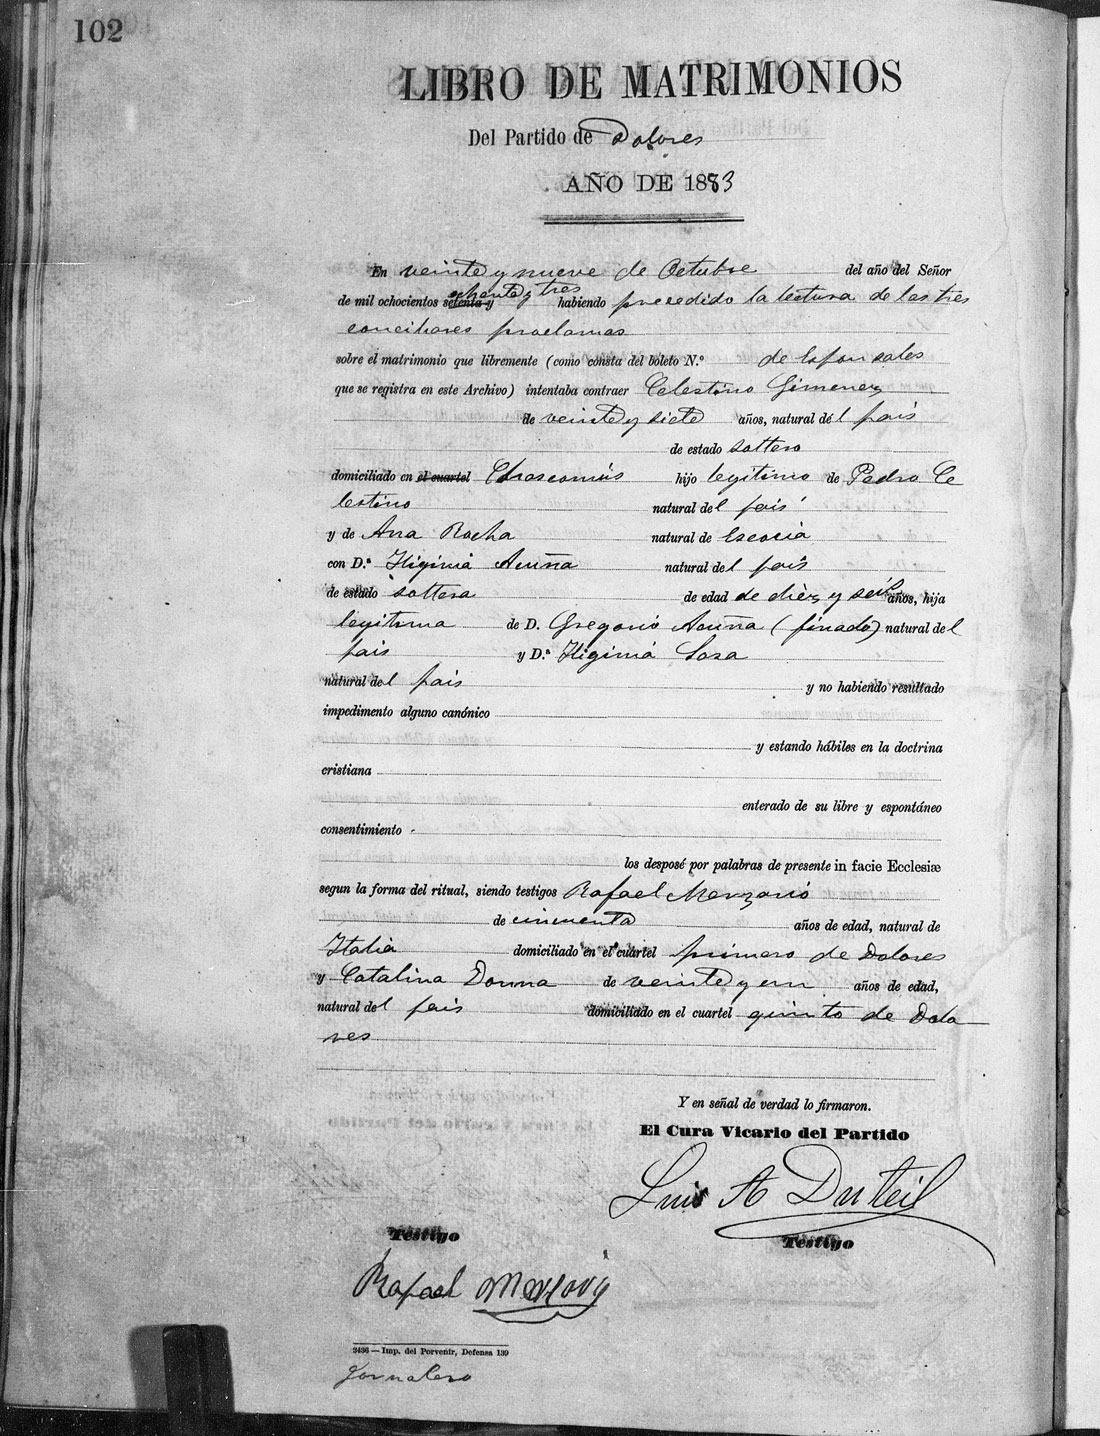 102
LIBRO DE MATRIMONIOS
Del Partido de Dolores
AÑO DE 1883
En veinte y nueve de Octubre del año del Señor
ochenta y tres
de mil ochocientos setenta y habiendo precedido la lectura de las tres
conciliares proclamas
sobre el matrimonio que libremente (como consta del boleto N.º de Esponsales
que se registra en este Archivo) intentaba contraer Celestino Gimenez
de veinte y siete años, natural del pais
de estado soltero
domiciliado en el cuartel Chascomús hijo legitimo de Pedro Ce
lestino natural del pais
y de Ana Rocha natural de Escocia
con D.ª Higinia Acuña natural del pais
de estado soltera de edad de diez y seis años, hija
legitima de D. Gregorio Acuña (finado) natural del
pais y D.ª Higinia Sosa
natural del pais y no habiendo resultado
impedimento alguno canónico
y estando hábiles en la doctrina
cristiana
enterado de su libre y espontáneo
consentimiento
los desposé por palabras de presente in facie Ecclesiæ
segun la forma del ritual, siendo testigos Rafael Merzario
de cincuenta años de edad, natural de
Italia domiciliado en el cuartel primero de Dolores
y Catalina Donna de veinte y un años de edad,
natural del pais domiciliado en el cuartel quinto de Dolo
res
Y en señal de verdad lo firmaron.
El Cura Vicario del Partido
Luis A Duteil
Testigo Testigo
Rafael
2436 — Imp. del Porvenir, Defensa 139
Jornalero